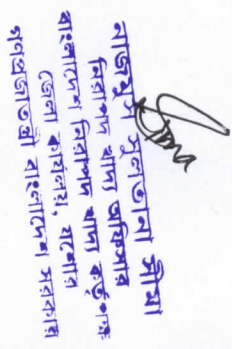 নাজমুন সুলতানা সীমা
নিরাপদ খাদ্য অফিসার
বাংলাদেশ নিরাপদ খাদ্য কর্তৃপক্ষ
জেলা কার্যালয়, যশোর
গণপ্রজাতন্ত্রী বাংলাদেশ সরকার